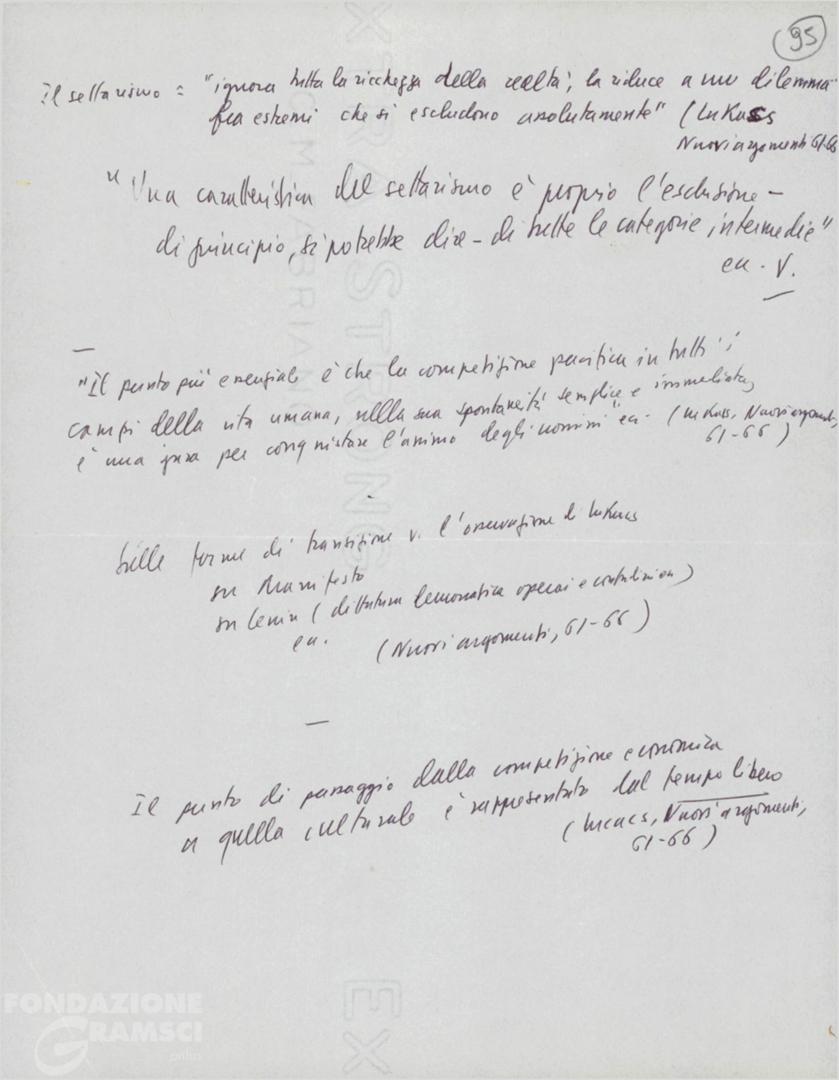 95
Il settarismo = "ignora tutta la ricchezza della realtà; la riduce a un dilemma
fra estremi che si escludono assolutamente" (Lukacs
Nuovi argomenti 61-66
"Una caratteristica del settarismo è proprio l'esclusione -
di principio, si potrebbe dire - di tutte le categorie intermedie"
ecc. V.
—
"Il punto più essenziale è che la competizione pacifica in tutti i
campi della vita umana, nella sua spontaneità semplice e immediata,
è una gara per conquistare l'animo degli uomini" ecc. (Lukacs, Nuovi argomenti,
61-66)
Sulle forme di transizione v. l'osservazione di Lukacs
su Manifesto
su Lenin (dittatura democratica operai e contadini)
ecc. (Nuovi argomenti, 61-66)
—
Il punto di passaggio dalla competizione economica
a quella culturale è rappresentato dal tempo libero
(Lucacs, Nuovi argomenti,
61-66)
EXTRA STRONG
FABRIANO
EX
FONDAZIONE
GRAMSCI
onlus